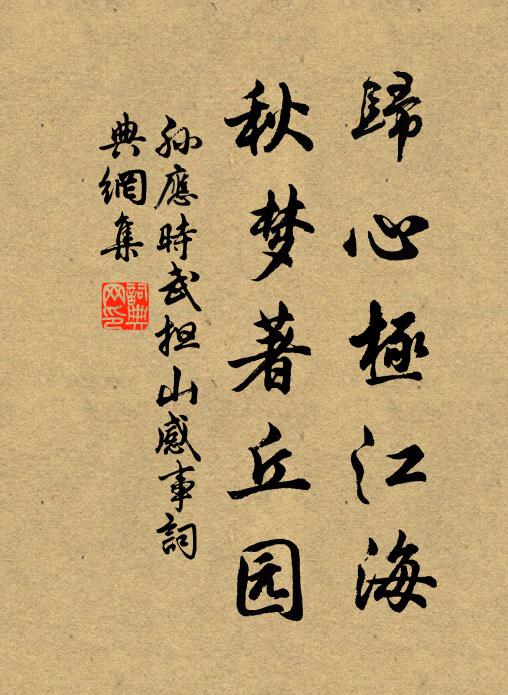 歸心極江海
秋梦著丘园
孙應時武担山感事詞
典網集
詞典网印